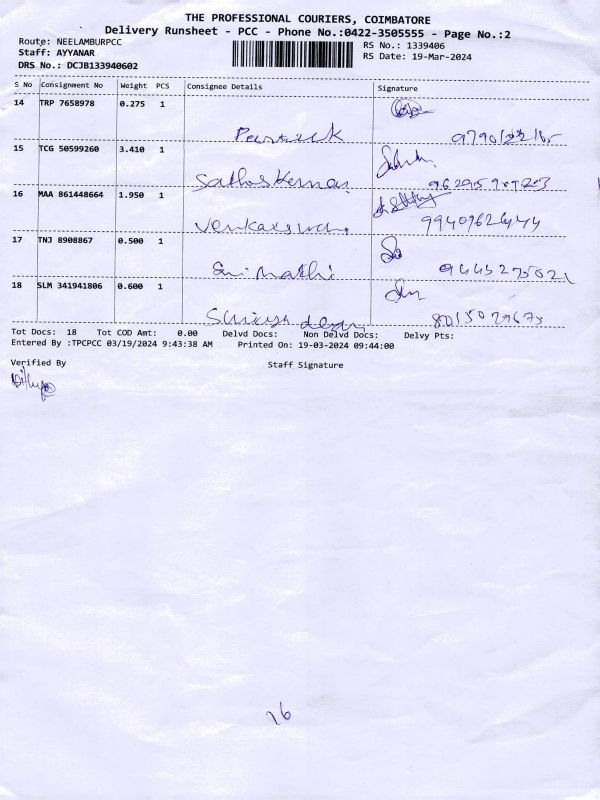 THE PROFESSIONAL COURIERS, COIMBATORE
Delivery Runsheet - PCC - Phone No.:0422-3505555 - Page No.:2
Route: NEELAMBURPCC
Staff: AYYANAR
DRS No.: DCJB133940602
RS No.: 1339406
RS Date: 19-Mar-2024
S No Consignment No Weight PCS Consignee Details Signature
14 TRP 7658978 0.275 1
15 TCG 50599260 3.410 1
Sathoskumar
16 MAA 861448664 1.950 1
9940962444
17 TNJ 8908867 0.500 1
Sri mathi 9445275021
18 SLM 341941806 0.600 1
Tot Docs: 18 Tot COD Amt: 0.00 Delvd Docs: Non Delvd Docs: Delvy Pts:
Entered By :TPCPCC 03/19/2024 9:43:38 AM Printed On: 19-03-2024 09:44:00
Verified By Staff Signature
16